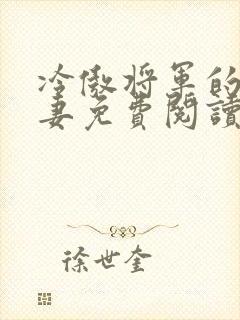 冷傲将军的
妻免費閱讀
徐世奎